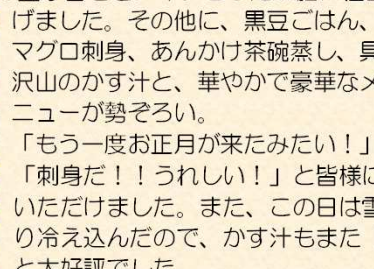 げました。その他に、黒豆ごはん、
マグロ刺身、あんかけ茶碗蒸し、具
沢山のかす汁と、華やかで豪華なメ
ニューが勢ぞろい。
「もう一度お正月が来たみたい！」
「刺身だ！！うれしい！」と皆様に
いただけました。また、この日は雪
り冷え込んだので、かす汁もまた
と大好評でした